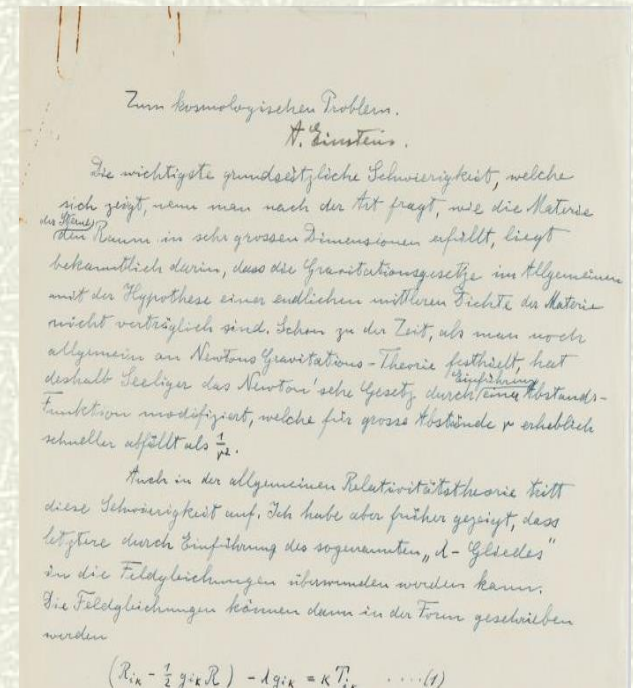 Zum kosmologischen Problem.
A. Einstein.
Die wichtigste grundsätzliche Schwierigkeit, welche
sich zeigt, wenn man nach der Art fragt, wie die Materie
den Raum in sehr grossen Dimensionen erfüllt, liegt
bekanntlich darin, dass die Gravitationsgesetze im Allgemeinen
mit der Hypothese einer endlichen mittleren Dichte der Materie
nicht verträglich sind. Schon zu der Zeit, als man noch
allgemein an Newtons Gravitations-Theorie festhielt, hat
Einführung
deshalb Seeliger das Newton'sche Gesetz durch einer Abstands-
Funktion modifiziert, welche für grosse Abstände r erheblich
schneller abfällt als 1/r².
Auch in der allgemeinen Relativitätstheorie tritt
diese Schwierigkeit auf. Ich habe aber früher gezeigt, dass
letztere durch Einführung des sogenannten „λ-Gliedes"
in die Feldgleichungen überwunden werden kann.
Die Feldgleichungen können dann in der Form geschrieben
werden
(Rᵢₖ - ½ gᵢₖ R) - λgᵢₖ = κ Tᵢₖ .....(1)